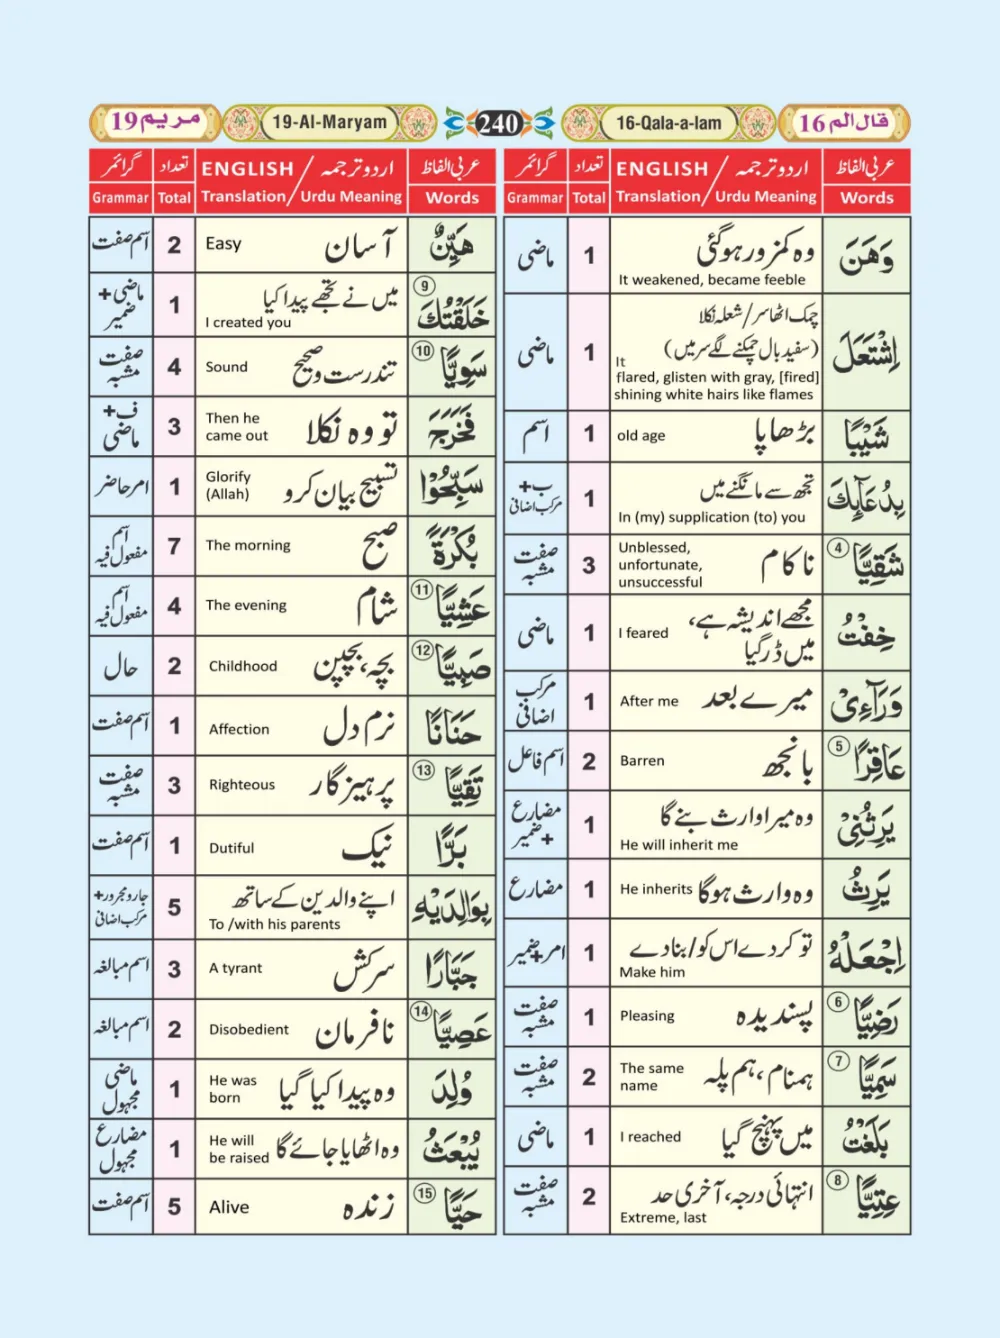 مریم 19
19-Al-Maryam
240
16-Qala-a-lam
قال الم 16
عربی الفاظ
اردو ترجمہ / ENGLISH
تعداد
گرائمر
Words
Translation / Urdu Meaning
Total
Grammar
وَهَنَ
وہ کمزور ہوگئی
It weakened, became feeble
1
ماضی
اِشْتَعَلَ
چمک اٹھا سر/شعلہ نکلا
(سفید بال چمکنے لگے سر میں)
It
flared, glisten with gray, [fired]
shining white hairs like flames
1
ماضی
شَيْبًا
بڑھاپا
old age
1
اسم
بِدُعَآئِكَ
تجھ سے مانگنے میں
In (my) supplication (to) you
1
ب+
مرکب اضافی
شَقِيًّا ④
ناکام
Unblessed,
unfortunate,
unsuccessful
3
صفت
مشبہ
خِفْتُ
مجھے اندیشہ ہے،
میں ڈر گیا
I feared
1
ماضی
وَرَآءِىْ
میرے بعد
After me
1
مرکب
اضافی
عَاقِرًا ⑤
بانجھ
Barren
2
اسم فاعل
يَرِثُنِىْ
وہ میرا وارث بنے گا
He will inherit me
1
مضارع
+ضمیر
يَرِثُ
وہ وارث ہوگا
He inherits
1
مضارع
اِجْعَلْهُ
تو کردے اس کو/بنادے
Make him
1
امر+ضمیر
رَضِيًّا ⑥
پسندیدہ
Pleasing
1
صفت
مشبہ
سَمِيًّا ⑦
ہمنام، ہم پلہ
The same
name
2
صفت
مشبہ
بَلَغْتُ
میں پہنچ گیا
I reached
1
ماضی
عِتِيًّا ⑧
انتہائی درجہ، آخری حد
Extreme, last
2
صفت
مشبہ
عربی الفاظ
اردو ترجمہ / ENGLISH
تعداد
گرائمر
Words
Translation / Urdu Meaning
Total
Grammar
هَيِّنٌ
آسان
Easy
2
اسم صفت
خَلَقْتُكَ ⑨
میں نے تجھے پیدا کیا
I created you
1
ماضی+
ضمیر
سَوِيًّا ⑩
تندرست و صحیح
Sound
4
صفت
مشبہ
فَخَرَجَ
تو وہ نکلا
Then he
came out
3
ف+
ماضی
سَبِّحُوْا
تسبیح بیان کرو
Glorify
(Allah)
1
امر حاضر
بُكْرَةً
صبح
The morning
7
اسم
مفعول فیہ
عَشِيًّا ⑪
شام
The evening
4
اسم
مفعول فیہ
صَبِيًّا ⑫
بچہ، بچپن
Childhood
2
حال
حَنَانًا
نرم دل
Affection
1
اسم صفت
تَقِيًّا ⑬
پرہیزگار
Righteous
3
صفت
مشبہ
بَرًّا
نیک
Dutiful
1
اسم صفت
بِوَالِدَيْهِ
اپنے والدین کے ساتھ
To /with his parents
5
جار و مجرور+
مرکب اضافی
جَبَّارًا
سرکش
A tyrant
3
اسم مبالغہ
عَصِيًّا ⑭
نافرمان
Disobedient
2
اسم مبالغہ
وُلِدَ
وہ پیدا کیا گیا
He was
born
1
ماضی
مجہول
يُبْعَثُ
وہ اٹھایا جائے گا
He will
be raised
1
مضارع
مجہول
حَيًّا ⑮
زندہ
Alive
5
اسم صفت